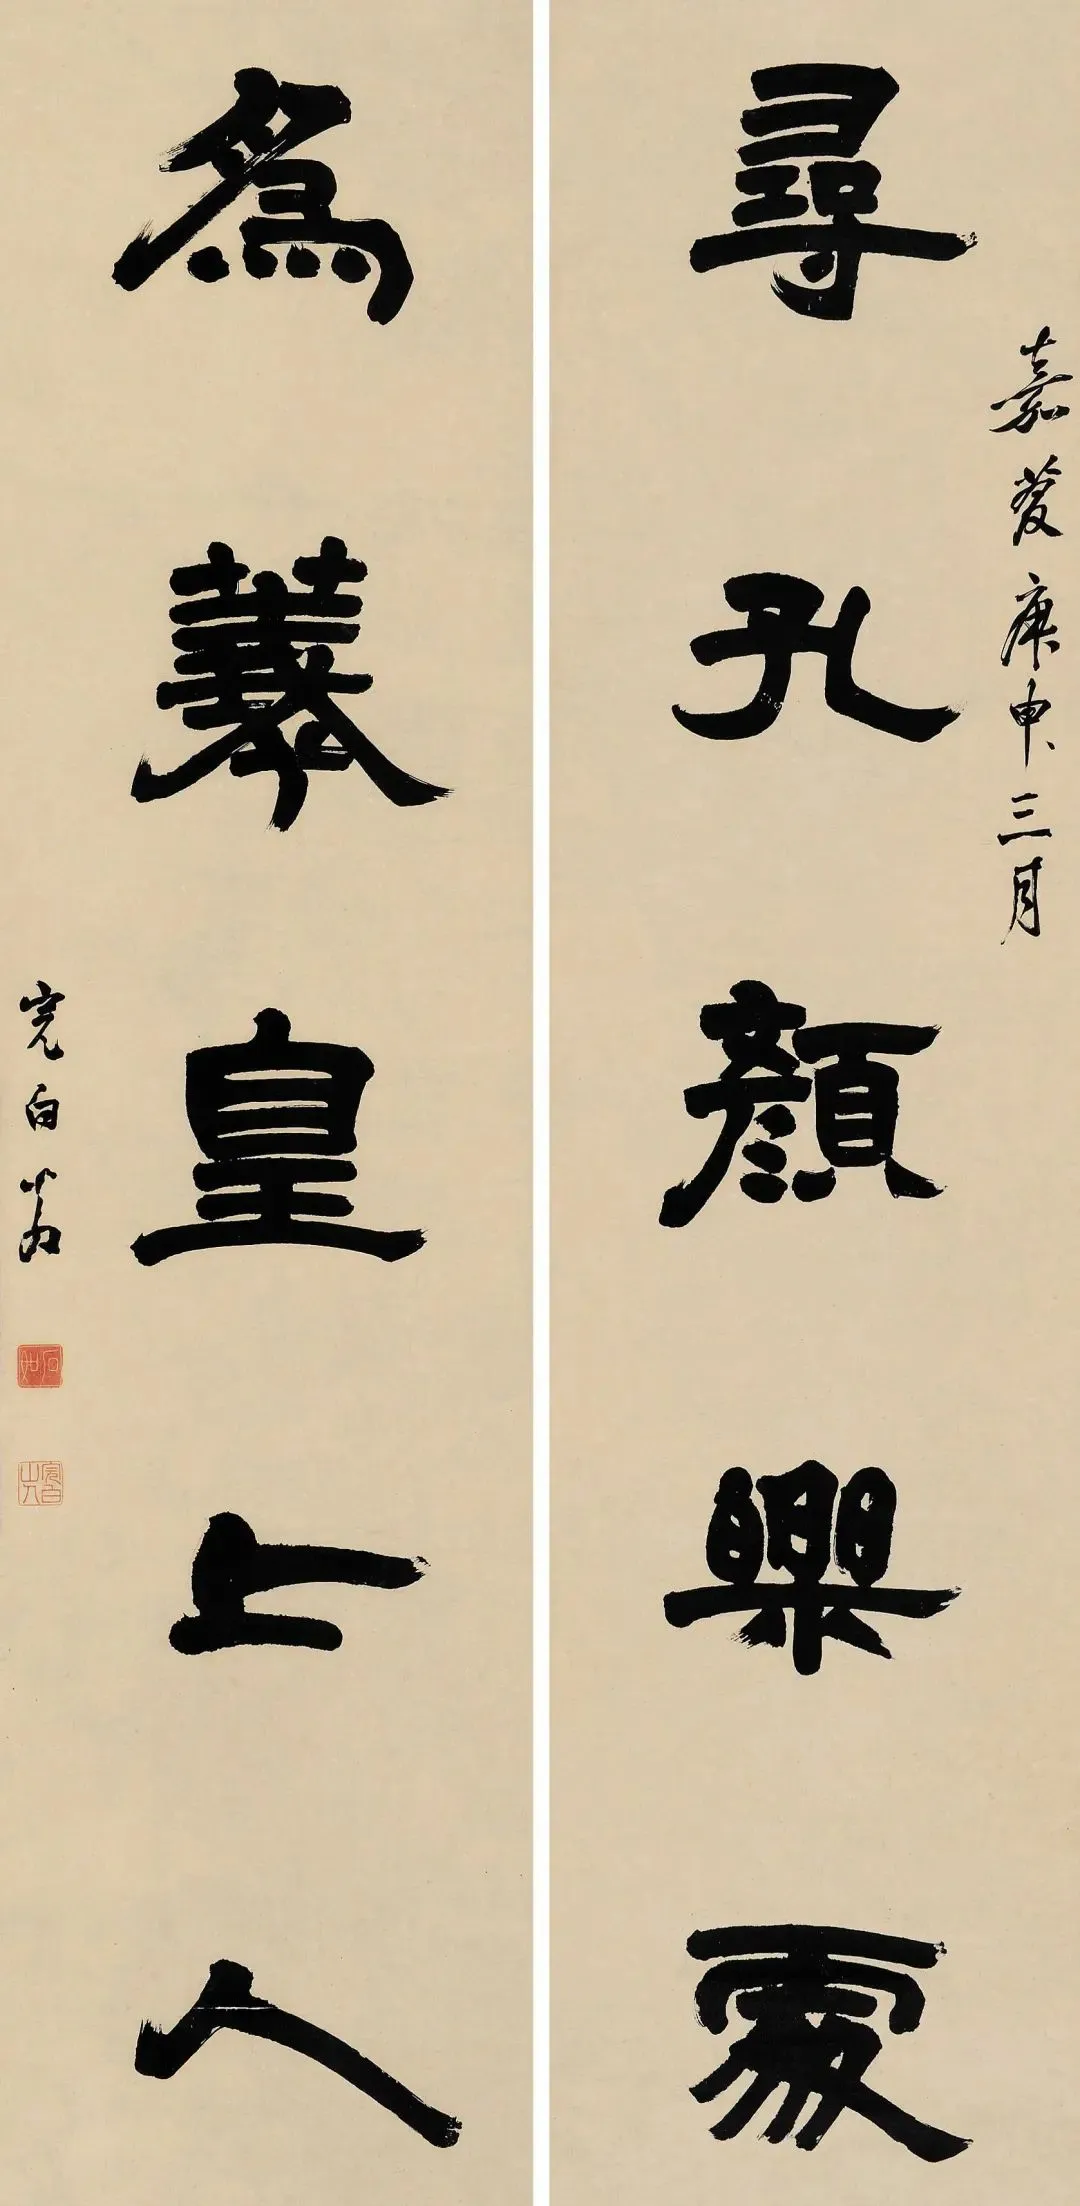 尋孔顏樂處
嘉慶庚申三月
為羲皇上人
完白翁
石如
完白山人